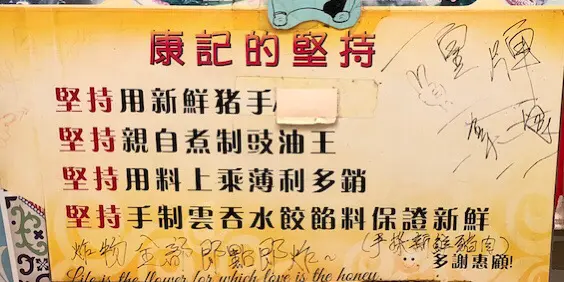 康記的堅持
堅持用新鮮豬手
堅持親自煮制豉油王
堅持用料上乘薄利多銷
堅持手制雲吞水餃餡料保證新鮮
炸物全部即點即炸~
(手採新鮮豬肉)
多謝惠顧!
Life is the flower for which love is the honey.